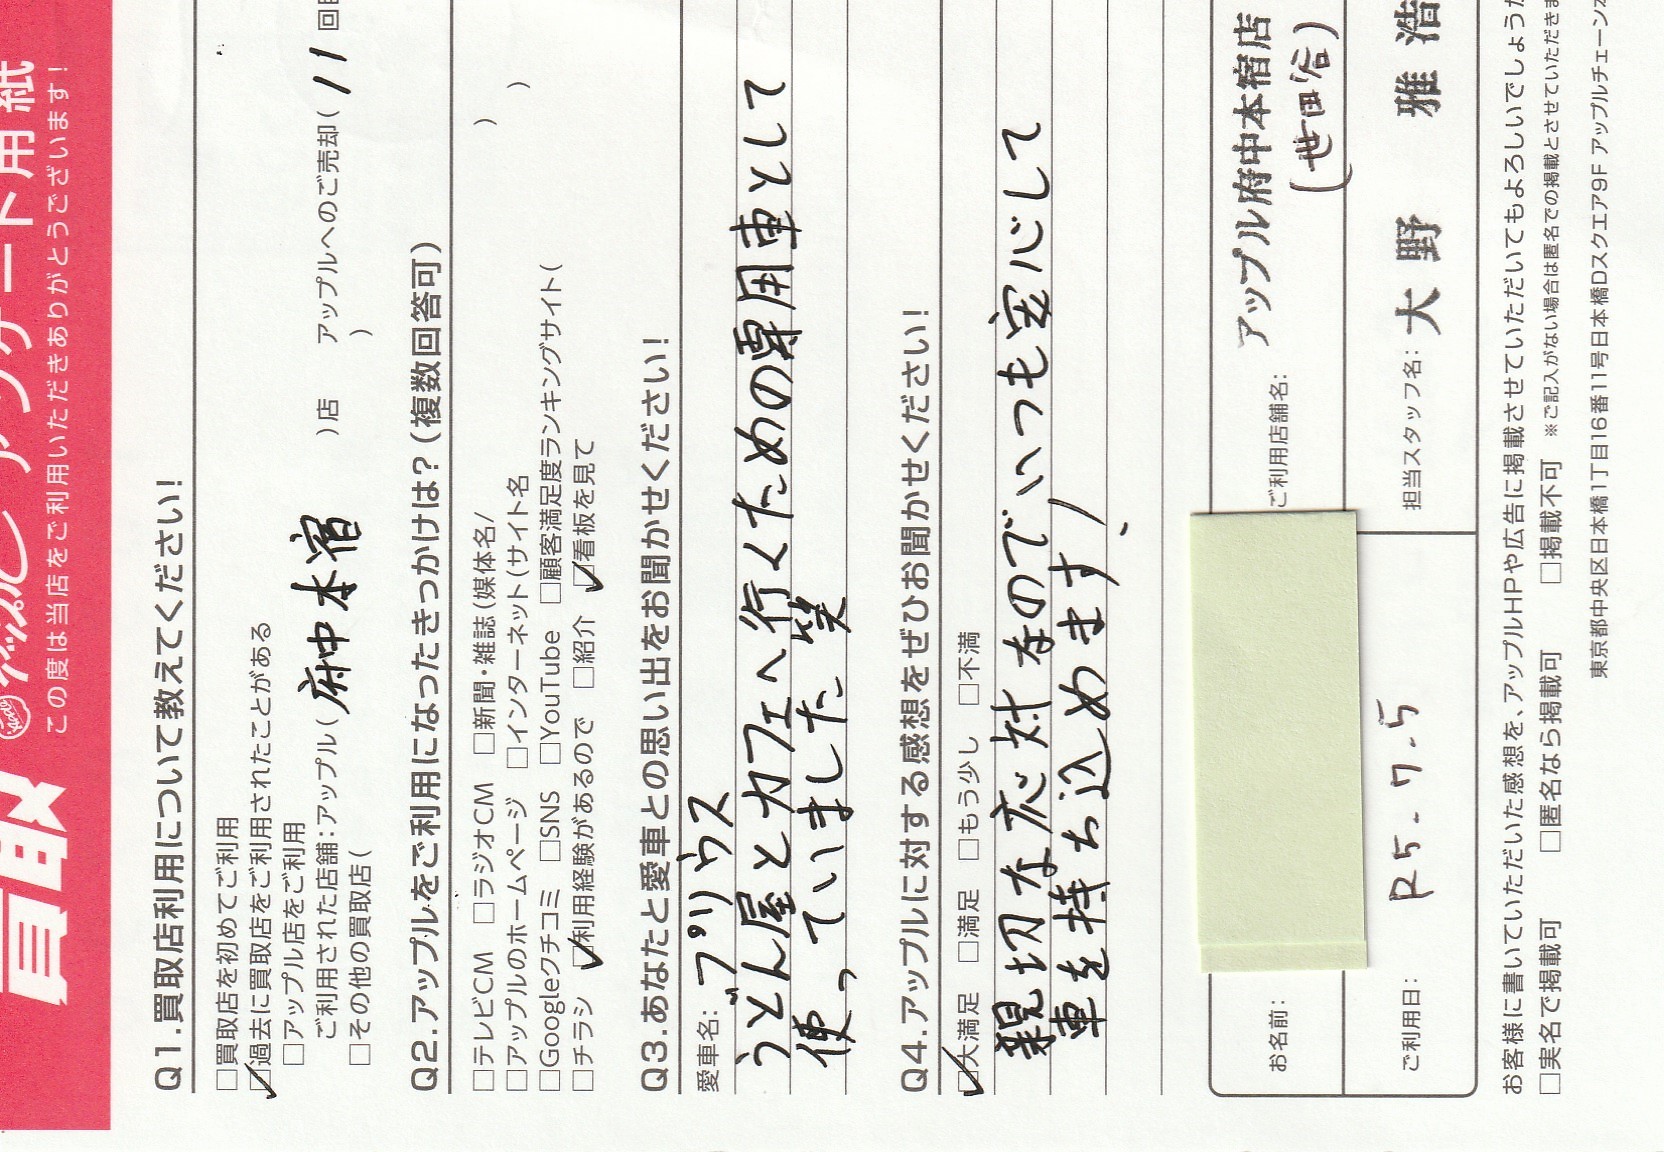 買取 アップル アンケート用紙
この度は当店をご利用いただきありがとうございます!
Q1.買取店利用について教えてください!
□買取店を初めてご利用
□過去に買取店をご利用されたことがある
□アップル店をご利用
ご利用された店舗:アップル( 府中本宿 )店 アップルへのご売却( 11 回目
□その他の買取店( )
Q2.アップルをご利用になったきっかけは?(複数回答可)
□テレビCM □ラジオCM □新聞・雑誌(媒体名/ )
□アップルのホームページ □インターネット(サイト名 )
□Googleクチコミ □SNS □YouTube □顧客満足度ランキングサイト(
□チラシ □利用経験があるので □紹介 □看板を見て
Q3.あなたと愛車との思い出をお聞かせください!
愛車名: プリウス
うどん屋とカフェへ行くための専用車として
使っていました 笑
Q4.アップルに対する感想をぜひお聞かせください!
□大満足 □満足 □もう少し □不満
親切な応対なのでいつも安心して
車を持ち込めます!
お名前: ご利用店舗名: アップル府中本宿店
(世田谷)
ご利用日: R5-7-5 担当スタッフ名: 大野 雅浩
お客様に書いていただいた感想を、アップルHPや広告に掲載させていただいてもよろしいでしょうか
□実名で掲載可 □匿名なら掲載可 □掲載不可 ※ご記入がない場合は匿名での掲載とさせていただきま
東京都中央区日本橋1丁目16番11号日本橋Dスクエア9F アップルチェーン本